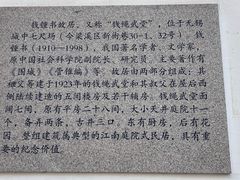 钱钟书故居，又称“钱绳武堂”，位于无锡
城中七尺场（今梁溪区新街巷30-1、32号）。钱
钟书（1910—1998），我国著名学者、文学家，
原中国社会科学院副院长、研究员，主要著作有
《围城》《管锥编》等。故居由两部分组成：其
祖父等建于1923年的钱绳武堂和其叔父在屋后西
侧陆续建造的五间楼房及若干辅房。钱绳武堂面
阔七间，原有平房二十八间，大小天井庭院十一
个，备弄两条，古井三口。东有厨房，后有花
园。整组建筑属典型的江南庭院式民居，具有重
要的纪念价值。